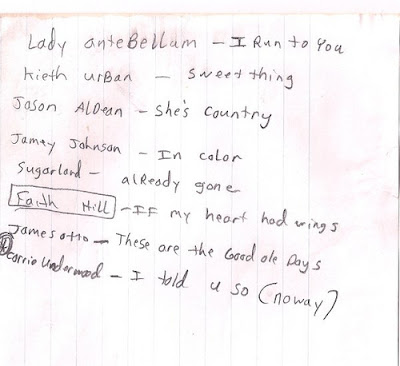 Lady anteBellum - I Run to You
Kieth urBan - Sweet thing
Jason AlDean - She's Country
Jamey Johnson - In color
Sugarland - alReady gone
Faith Hill - IF my heart had wings
James otto - These are the Good ole Days
Carrie Underwood - I told u so (noway)